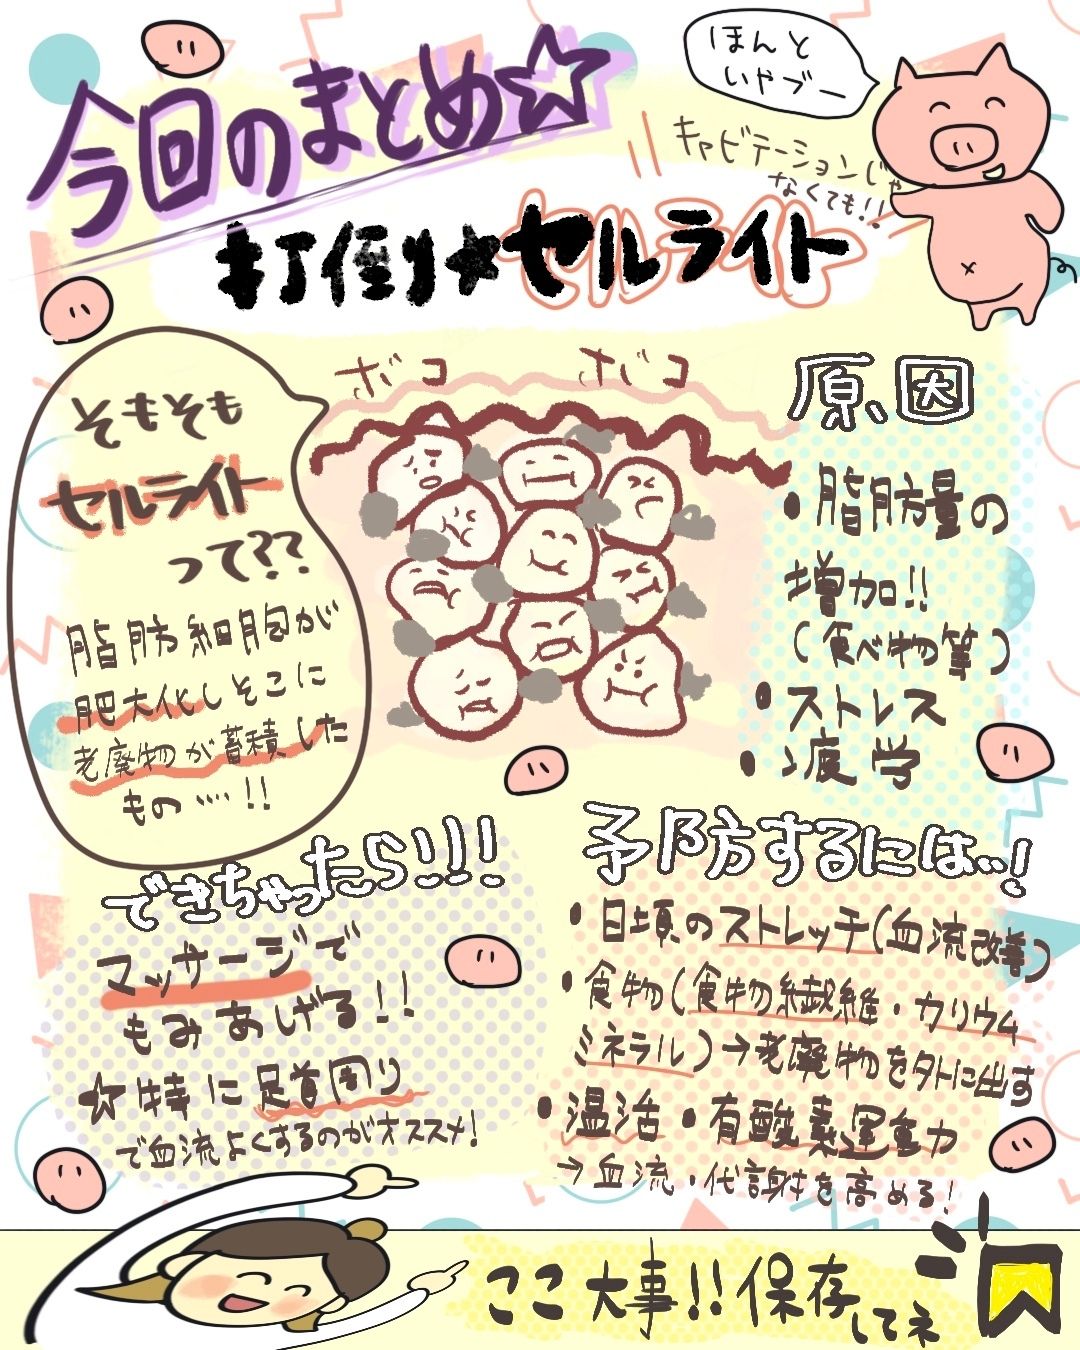 今回のまとめ☆
ほんと
いやブー
キャビテーションじゃ
なくても!!
打倒★セルライト
そもそも
セルライト
って??
脂肪細胞が
肥大化しそこに
老廃物が蓄積した
もの....!!
ボコ ボコ
原因
・脂肪量の
増加!!
(食べ物等)
・ストレス
・疲労
できちゃったら!!!
マッサージで
もみあげる!!
☆特に足首周り
で血流よくするのがオススメ!
予防するには..!
・日頃のストレッチ(血流改善)
・食物(食物繊維・カリウム
ミネラル)→老廃物を外に出す
・温活・有酸素運動
→血流・代謝を高める!
ここ大事!!保存してネ